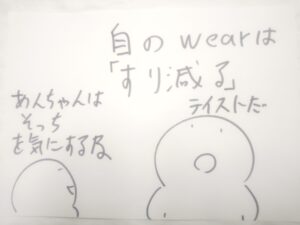 自のwearは
「すり減る」
テイストだ
めんちゃんは
そっち
を気にする段